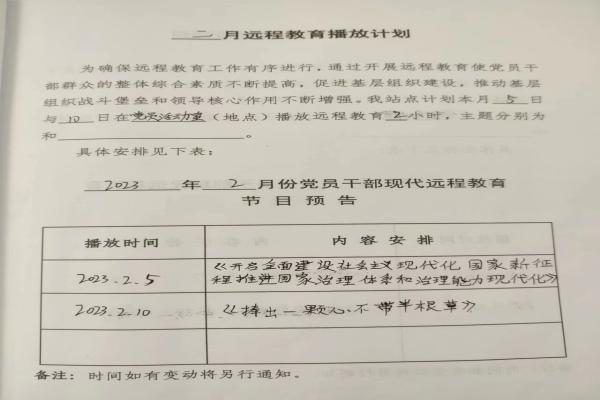 二月远程教育播放计划
为确保远程教育工作有序进行，通过开展远程教育使党员干
部群众的整体综合素质不断提高，促进基层组织建设，推动基层
组织战斗堡垒和领导核心作用不断增强。我站点计划本月5日
与10日在党员活动室（地点）播放远程教育2小时，主题分别为
和。
具体安排见下表：
2023年2月份党员干部现代远程教育
节目预告
播放时间 内容安排
2023.2.5 《开启全面建设社会主义现代化国家新征
程推进国家治理体系和治理能力现代化》
2023.2.10 《捧出一颗心不带半根草》
备注：时间如有变动将另行通知。